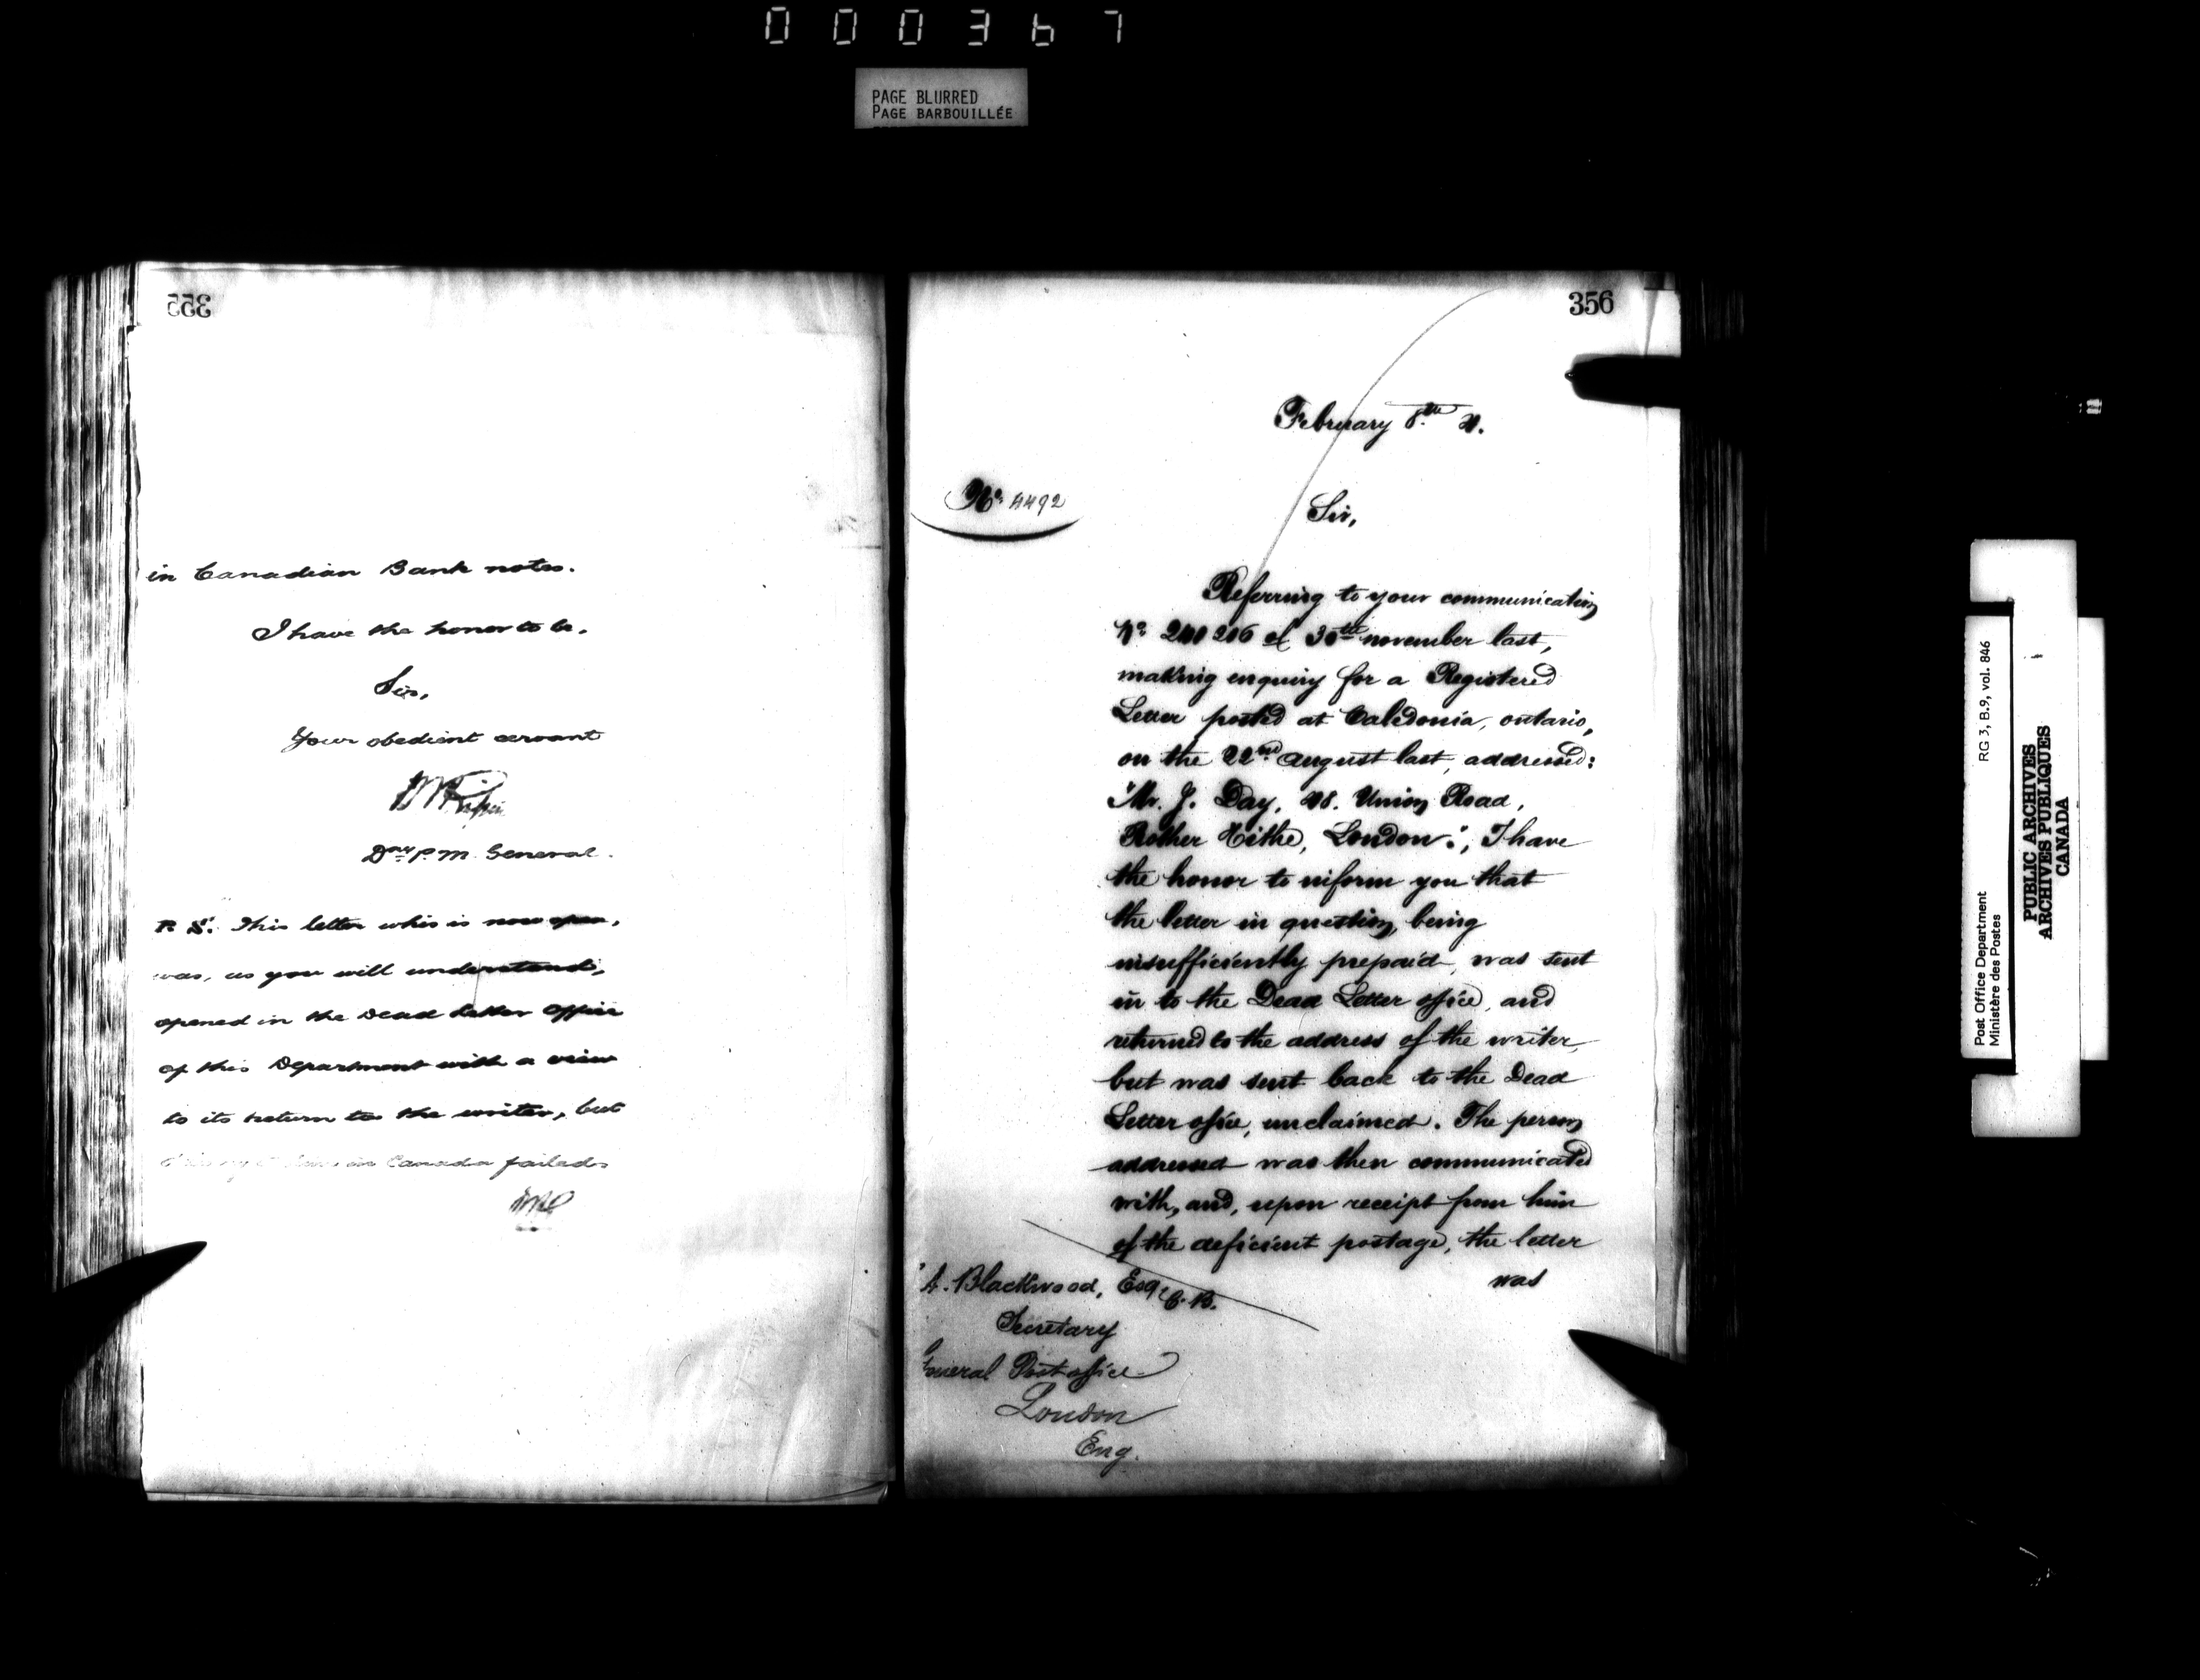 000367
PAGE BLURRED
PAGE BARBOUILLÉE
355
in Canadian Bank notes.
I have the honor to be,
Sir,
Your obedient servant
D. P. M. General.
P. S. This letter whis is now open,
was, as you will understand,
opened in the Dead Letter Office
of this Department with a view
to its return to the writer, but
in Canada failed.
356
February 8th
No. 4492
Sir,
Referring to your communication
No of 30th november last,
making enquiry for a Registered
Letter posted at Caledonia, ontario,
on the 22nd august last, addressed:
"Mr. J. Day, Union Road,
Rother Hithe, London.", I have
the honor to inform you that
the letter in question, being
insufficiently prepaid, was sent
in to the Dead Letter office, and
returned to the address of the writer,
but was sent back to the Dead
Letter office, unclaimed. The person
addressed was then communicated
with, and, upon receipt from him
of the deficient postage, the letter
was
A. Blackwood, Esq. C. B.
Secretary
General Post office
London
Eng.
Post Office Department
Ministère des Postes
RG 3, B.9, vol. 846
PUBLIC ARCHIVES
ARCHIVES PUBLIQUES
CANADA